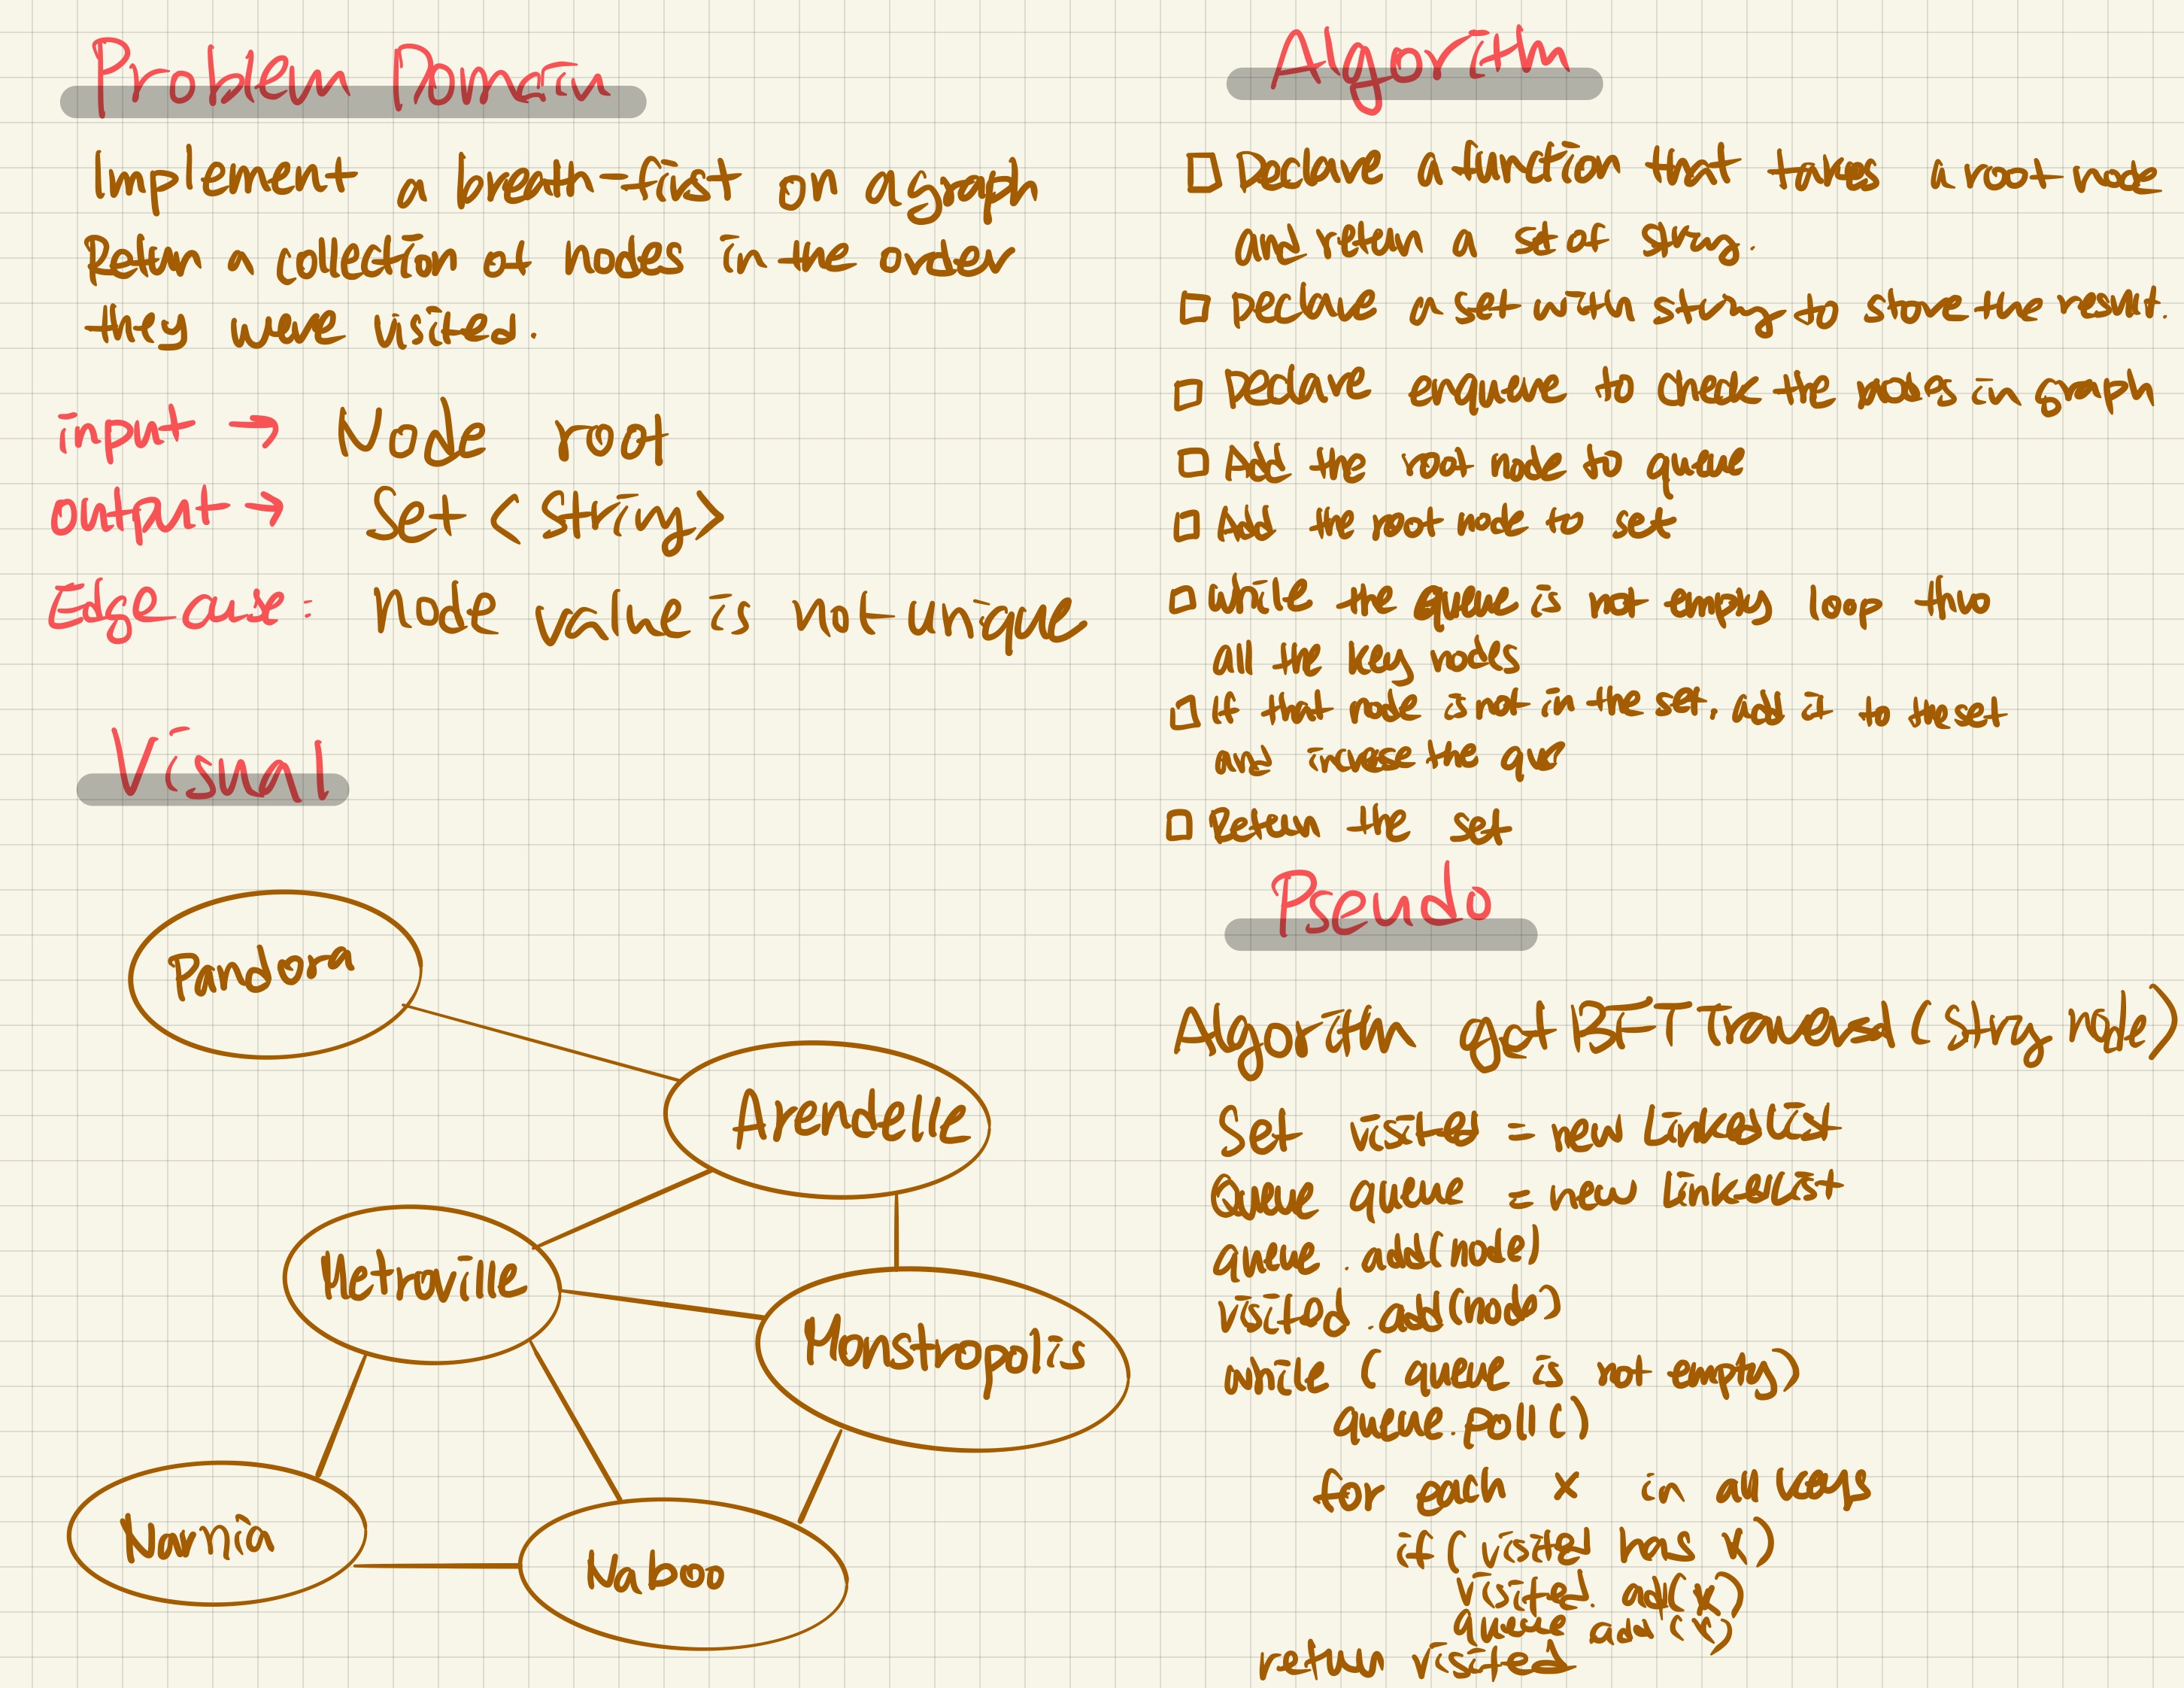 Problem Domain
Implement a breath-first on a graph
Return a collection of nodes in the order
they were visited.
input → Node root
output → Set <String>
Edge case: Node value is not unique
Visual
Pandora
Arendelle
Metroville
Monstropolis
Narnia
Naboo
Algorithm
Declare a function that takes a root node
and return a set of string.
Declare a set with string to store the result.
Declare enqueue to check the nodes in graph
Add the root node to queue
Add the root node to set
While the queue is not empty loop thro
all the key nodes
If that node is not in the set. add it to the set
and increase the que
Return the set
Pseudo
Algorithm get BFT Traversal (String node)
Set visited = new LinkedList
Queue queue = new LinkedList
queue.add(node)
visited.add(node)
while (queue is not empty)
queue.poll()
for each x in all keys
if (visited has x)
visited.add(x)
queue add(x)
return visited